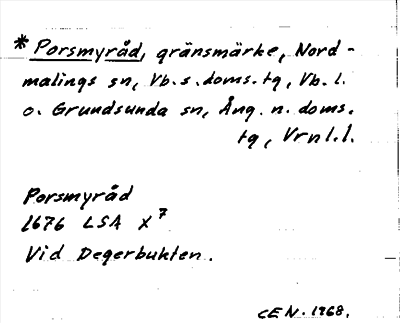 *Porsmyråd, gränsmärke, Nord-
malings sn, Vb.s.doms.tg, Vb.l.
o. Grundsunda sn, Ång.n.doms.
tg, Vrnl.l.
Porsmyråd
1676 LSA X7
Vid Degerbukten.
CEN.1968.